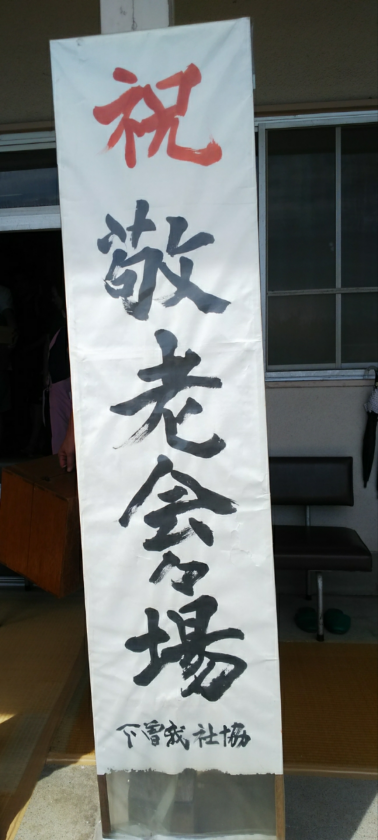 祝
敬老会々場
下曽我社協